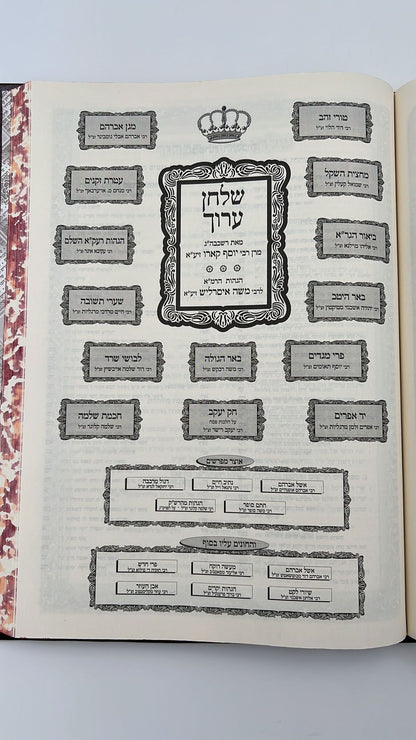 טורי זהב
רבי דוד הלוי זצ"ל
מגן אברהם
רבי אברהם אבלי גומבינר זצ"ל
מחצית השקל
רבי שמואל קעלין זצ"ל
עטרת זקנים
שלחן
ערוך
מאת רשכבה"ג
מרן רבי יוסף קארו זיע"א
הגהות הרמ"א
לרבי משה איסרליש זיע"א
ביאור הגר"א
רבי אליהו מוילנא זצ"ל
הגהות רעק"א השלם
רבי עקיבא איגר זצ"ל
באר היטב
רבי יהודה אשכנזי מטיקטין זצ"ל
שערי תשובה
רבי חיים מרדכי מרגליות זצ"ל
פרי מגדים
רבי יוסף תאומים זצ"ל
באר הגולה
רבי משה רבקש זצ"ל
לבושי שרד
רבי דוד שלמה אייבשיץ זצ"ל
יד אפרים
רבי אפרים זלמן מרגליות זצ"ל
חק יעקב
על הלכות פסח
רבי יעקב רישר זצ"ל
חכמת שלמה
רבי שלמה קלוגר זצ"ל
אוצר מפרשים
אשל אברהם
נתיב חיים
דגול מרבבה
חתם סופר
רבי משה סופר זצ"ל
הגהות מהרש"ק
והחונים עליו בסוף
אשל אברהם
מעשה רוקח
פרי חדש
שיורי לקט
הגהות יקרים
אבן העוזר